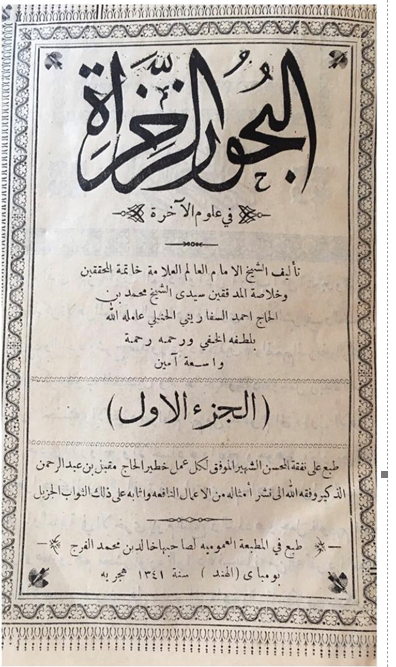 البحور الزاخرة
في علوم الآخرة
تأليف الشيخ الامام العالم العلامة خاتمة المحققين
وخلاصة المدققين سيدى الشيخ محمد بن
الحاج احمد السفاريني الحنبلي عامله الله
بلطفه الخفي ورحمه رحمة
واسعة آمين
(الجزء الاول)
طبع على نفقة المحسن الشهير الموفق لكل عمل خطير الحاج مقبل بن عبد الرحمن
الذكير وفقه الله الى نشر أمثاله من الاعمال النافعه واثابه على ذلك الثواب الجزيل
طبع في المطبعة العموميه لصاحبها خالد بن محمد الفرج
بومباى (الهند) سنة ١٣٤١ هجريه